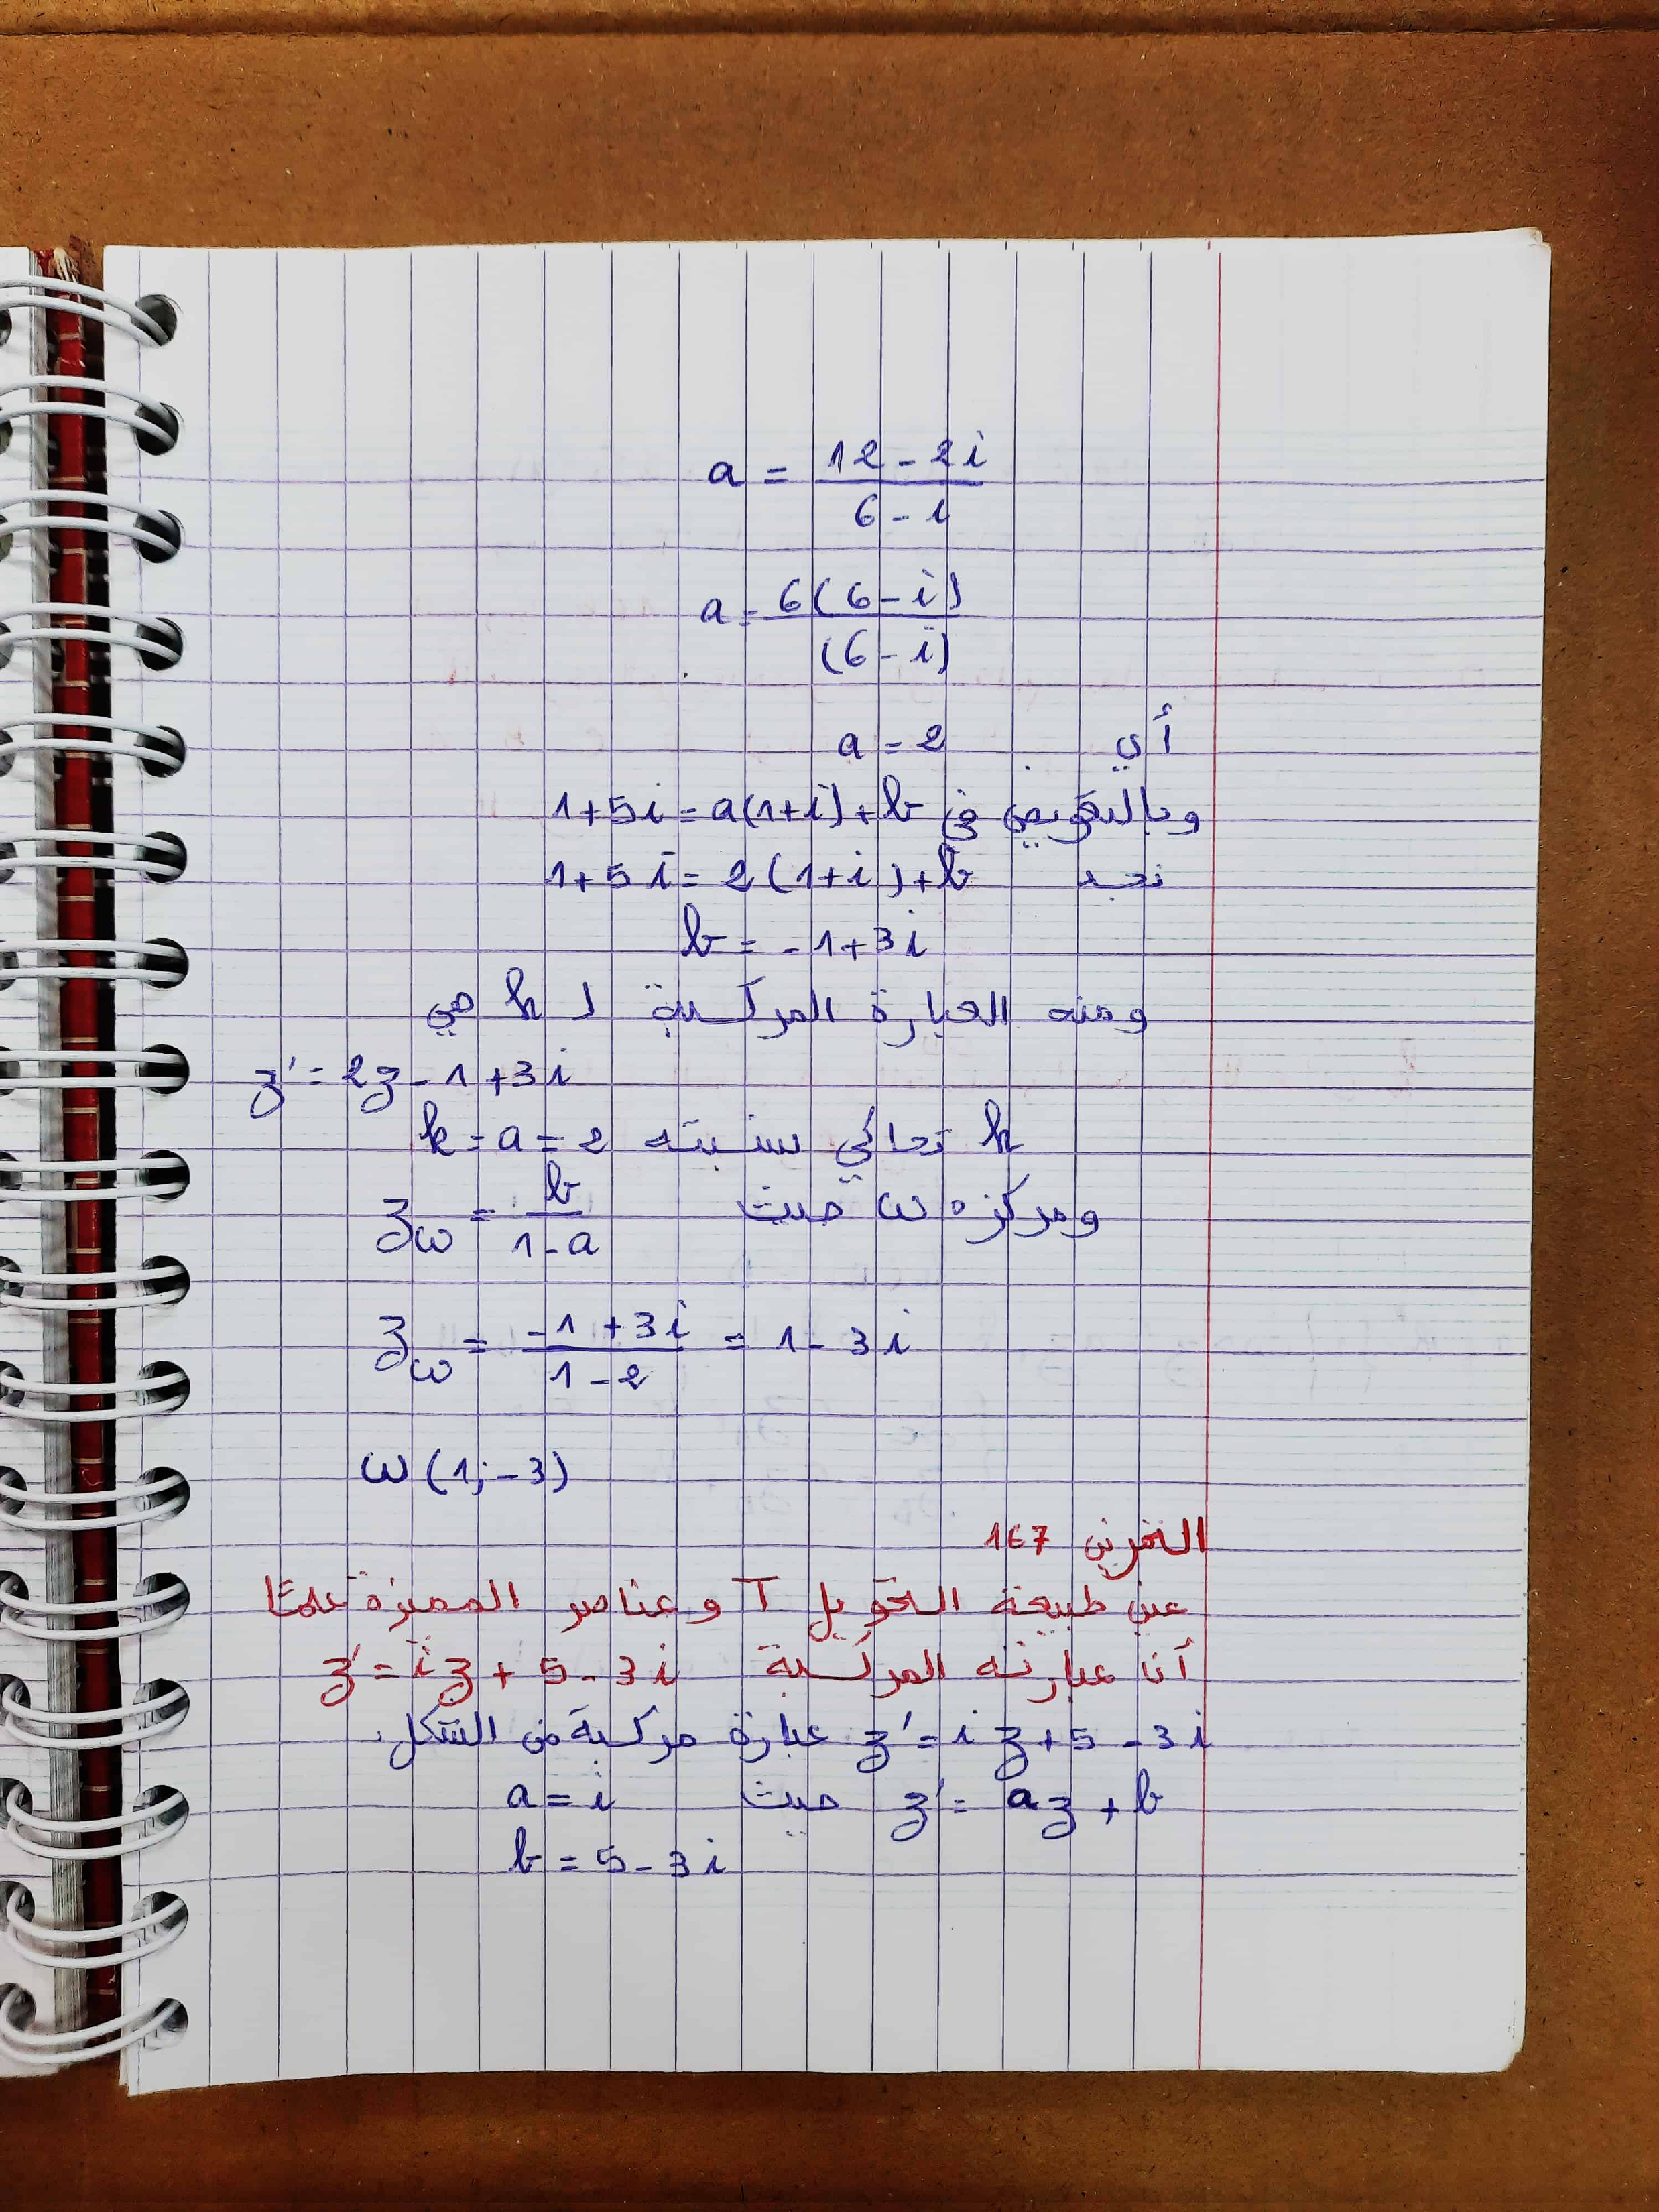 a = \frac{12-2i}{6-i}
a = \frac{6(6-i)}{(6-i)}
أي a = 2
وبالتعويض في 1+5i = a(1+i)+b
نجد 1+5i = 2(1+i)+b
b = -1+3i
ومنه العبارة المركبة ل h هي
z' = 2z-1+3i
h تحاكي نسبته k = a = 2
ومركزه ω حيث z_ω = \frac{b}{1-a}
z_ω = \frac{-1+3i}{1-2} = 1-3i
ω(1;-3)
التمرين 167
عين طبيعة التحويل T وعناصر المميزة علمتا
أن عبارته المركبة z' = iz+5-3i
z' = iz+5-3i عبارة مركبة من الشكل:
z' = az+b حيث a = i
b = 5-3i